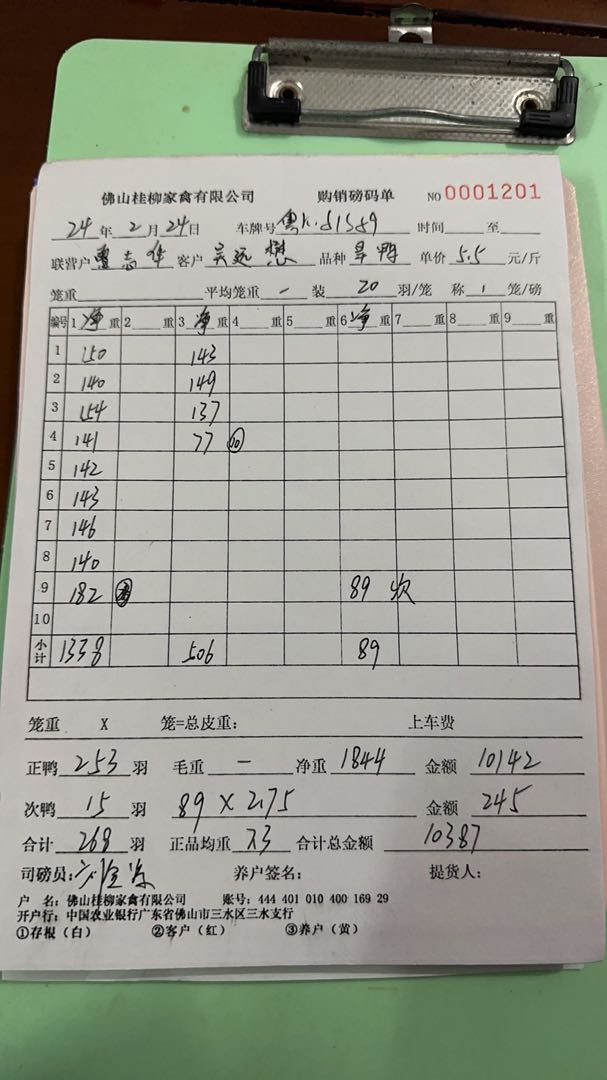 佛山桂柳家禽有限公司 购销磅码单 NO 0001201
24年2月24日 车牌号 粤K·51589 时间 至
联营户 志华 客户 吴远懋 品种 旱鸭 单价 5.5 元/斤
笼重 平均笼重 — 装 20 羽/笼 称 1 笼/磅
编号 1 净重 2 重 3 净重 4 重 5 重 6 净重 7 重 8 重 9 重
1 150 143
2 140 149
3 154 137
4 141 77 ⑩
5 142
6 143
7 146
8 140
9 182 89 次
10
小计 1338 506 89
笼重 X 笼=总皮重: 上车费
正鸭 253 羽 毛重 — 净重 1844 金额 10142
次鸭 15 羽 89 X 2.75 金额 245
合计 268 羽 正品均重 7.3 合计总金额 10387
司磅员: 养户签名: 提货人:
户 名: 佛山桂柳家禽有限公司 账号: 444 401 010 400 169 29
开户行: 中国农业银行广东省佛山市三水区三水支行
①存根（白） ②客户（红） ③养户（黄）